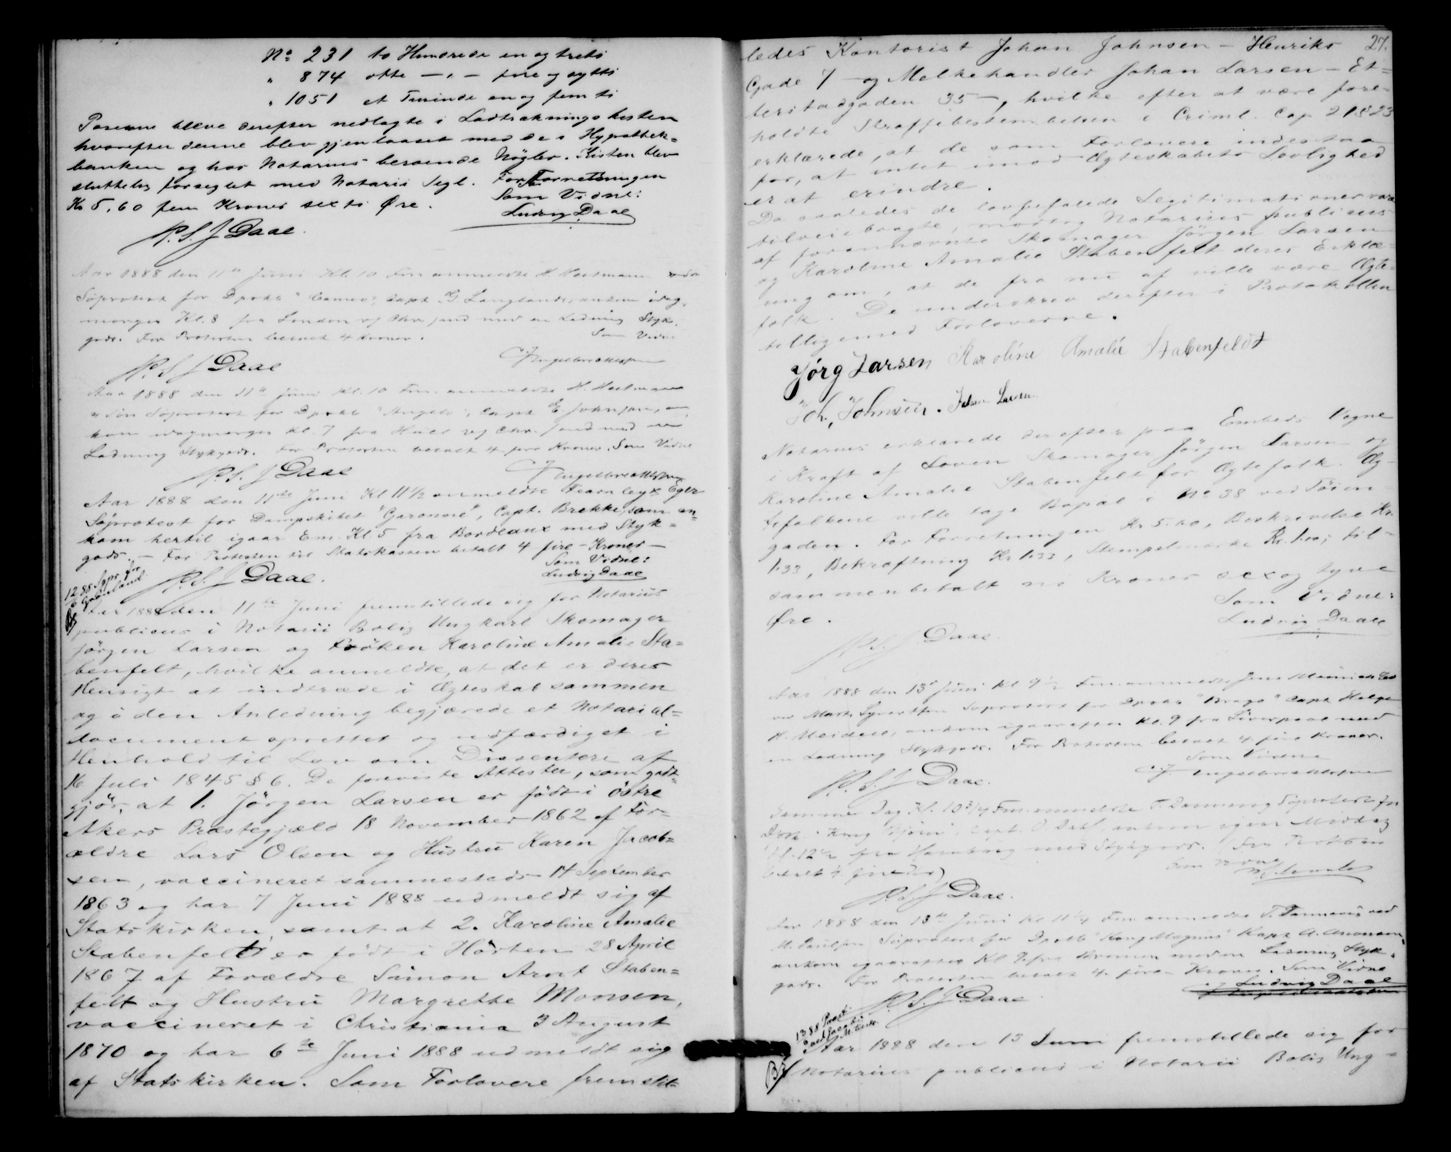 No 231 to Hundrede en og treti
" 874 otte — " — fire og sytti
" 1051 et Tusinde en og femti
bleve derefter nedlagte i Lodtrækningskisten
hvorefter denne blev gjenlaaset med de i Hypothek-
banken og hos Notarius beroende Nøgler. Kisten blev
sluttelig forseglet med Notarii Segl. For Forretningen
Kr 5,60 fem Kroner sexti Øre. Som Vidne:
Ludvig Daae
P.S.J Daae.
Aar 1888 den 11te Juni Kl. 10 Fm anmeldte H. Heitmann
Søprotest for Dpskb " Capt.
morges Kl. 8 fra London og Chr.sand med en Ladning Styk-
gods. For Protesten betalt 4 Kroner. Som Vidne
P.S.J Daae
Aar 1888 den 11te Juni Kl. 10 Fm. anmeldte H. Heitmann
sin Søprotest for Dpskb "Angelo", Capt. E. Johnson, an-
kom idagmorges Kl. 7 fra Hull og Chr.sand med en
Ladning Stykgods. For Protesten betalt 4 fire Kroner. Som Vidne
P.S.J Daae
Aar 1888 den 11te Juni Kl 11½ anmeldte Fearnley & Eger
Søprotest for Dampskibet "Garonne", Capt. Brekke, som an-
kom hertil igaar Em. Kl. 5 fra Bordeaux med Styk-
gods. — For Protesten til Statskassen betalt 4 fire — Kroner —
Som Vidne:
Ludvig Daae
P.S.J Daae.
Aar 1888 den 11te Juni fremstillede sig for Notarius
publicus i Notarii Bolig Ungkarl Skomager
Jørgen Larsen og Frøken Karoline Amalie Sta-
benfelt, hvilke anmeldte, at det er deres
Hensigt at indtræde i Ægteskab sammen
og i den Anledning begjærede et Notarial-
document oprettet og udfærdiget i
Henhold til Lov om Dissentere af
16 Juli 1845 § 6. De foreviste Attester, som godt-
gjør, at 1. Jørgen Larsen er født i østre
Akers Præstegjæld 18 November 1862 af For-
ældre Lars Olsen og Hustru Karen Jacob-
sen, vaccineret sammesteds 14 September
1863 og har 7 Juni 1888 udmeldt sig af
Statskirken, samt at 2. Karoline Amalie
Stabenfelt er født i Horten 28 April
1867 af Forældre Simon Arnt Staben-
felt og Hustru Margrethe Monsen,
vaccineret i Christiania 3 August
1870 og har 6te Juni 1888 udmeldt sig
af Statskirken. Som Forlovere fremstil-
27.
ledes Kontorist Johan Johnsen — Henriks
Gade 7 — og Melkehandler Johan Larsen — Et-
terstadgaden 35 —, hvilke efter at være fore-
holdte Straffebestemmelsen i Criml. Cap 21 § 23
erklærede, at de som Forlovere indestaa
for, at intet mod Ægteskabets Lovlighed
er at erindre.
Da saaledes de lovbefalede Legitimationer vare
tilveiebragte, modtog Notarius publicus
af forannævnte Skomager Jørgen Larsen
og Karoline Amalie Stabenfelt deres Erklæ-
ring om, at de fra nu af ville være Ægte-
folk. De underskrev derefter i Protokollen
tilligemed Forloverne.
Jørg Larsen Karoline Amalie Stabenfeldt
Joh. Johnsen. Johan Larsen.
Notarius erklærede derefter paa Embeds Vegne
i Kraft af Loven Skomager Jørgen Larsen og
Karoline Amalie Stabenfelt for Ægtefolk. Æg-
tefolkene ville tage Bopæl i No 38 ved
gaden. For Forretningen Kr. 5.60, Beskrivelse Kr.
1.33, Bekræftning Kr. 1.33, Stempelmærke Kr. 1.00; til-
sammen betalt ni Kroner sex og tyve
Øre. Som Vidne:
Ludvig Daae
P.S.J Daae.
Aar 1888 den 13 Juni Kl 9½ Fm anmeldte
Søprotest for Dpskb "Bravo" Capt
ankom igaaraftes Kl. 9 fra Liverpool med
en Ladning Stykgods. For Protesten betalt 4 fire Kroner.
Som Vidne
P.S.J Daae.
Samme Dag Kl. 10¾ Fm. anmeldte Søprotest for
Dpskb "Kong Bjørn", Capt. ankom igaar Middag
Kl. 12½ fra Hamburg med Stykgods. For Protesten
betalt 4 fire Kr. Som Vidne
P.S.J Daae.
Aar 1888 den 13de Juni Kl 11¼ Fm anmeldte ved
Søprotest for Dpskb "Kong Magnus" Kapt.
ankom igaaraftes Kl. fra med en Ladning Styk-
gods. For Protesten betalt 4 fire Kroner. Som Vidne
Ludvig Daae
P.S.J Daae
Aar 1888 den 13 Juni fremstillede sig for
Notarius publicus i Notarii Bolig Ung-